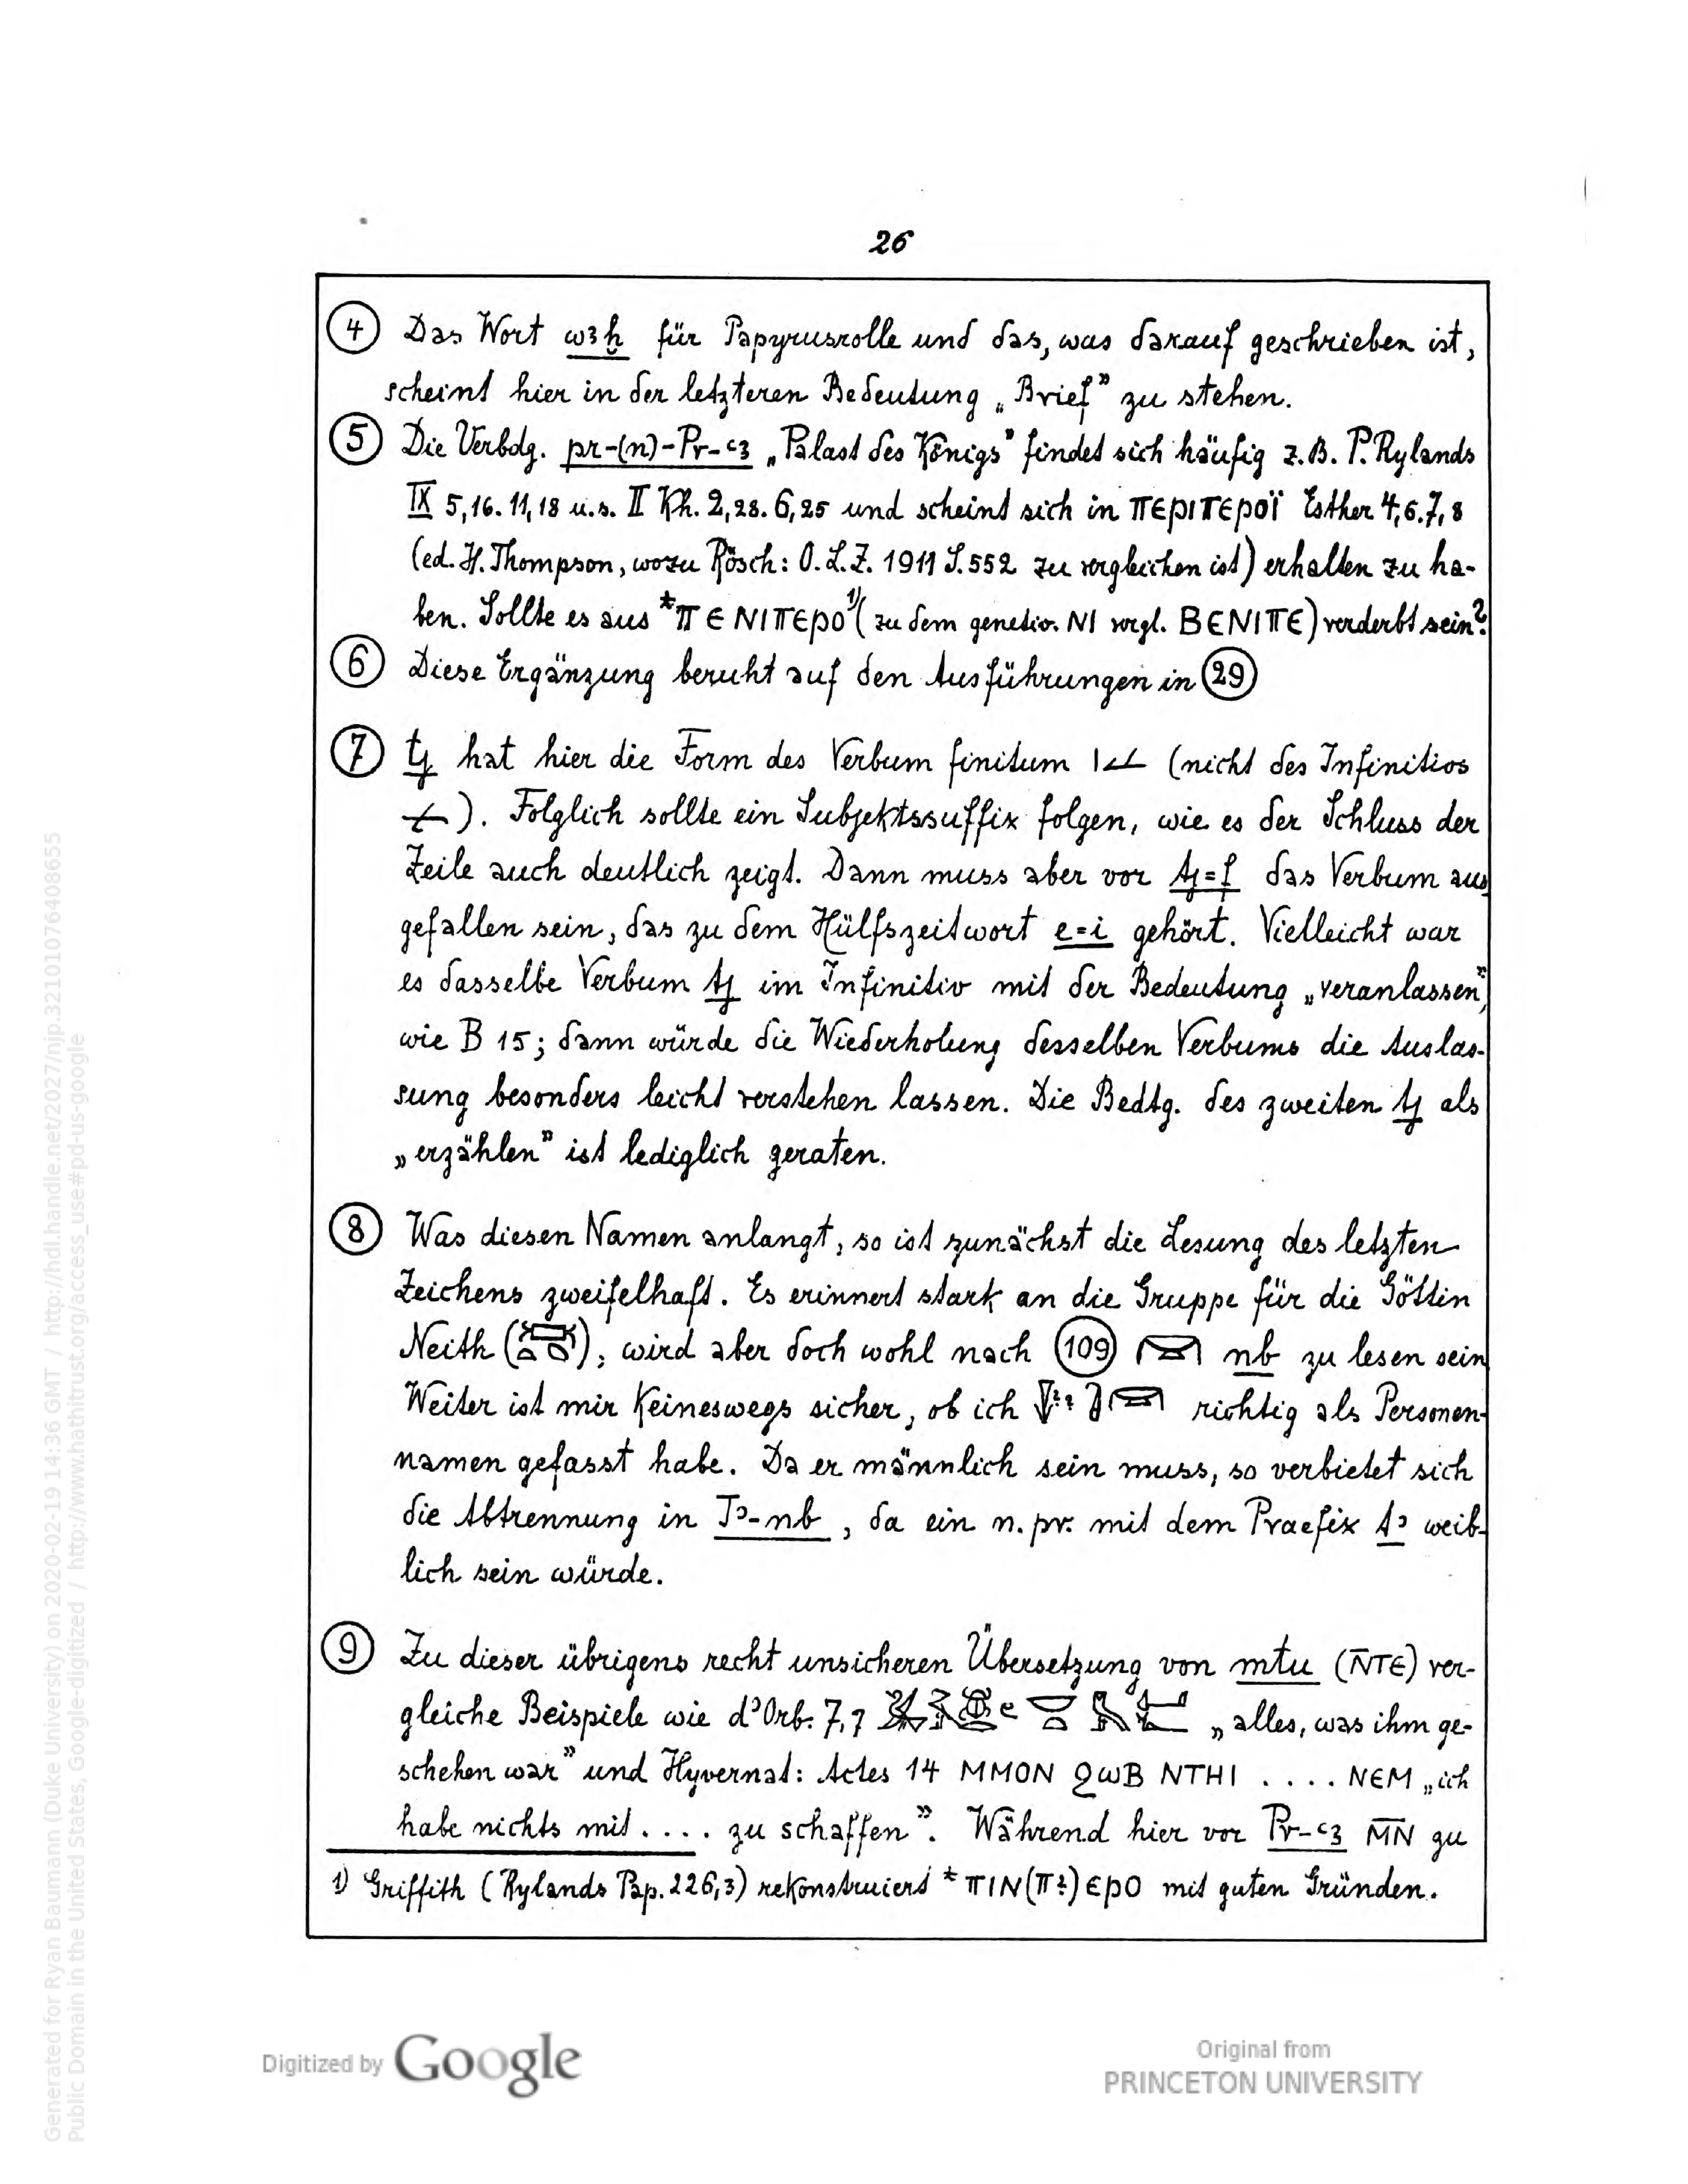 26
④ Das Wort wꜣḫ für Papyrusrolle und das, was darauf geschrieben ist,
scheint hier in der letzteren Bedeutung „Brief” zu stehen.
⑤ Die Verbdg. pr-(n)-Pr-ꜥꜣ „Palast des Königs” findet sich häufig z.B. P. Rylands
IX 5,16. 11,18 u.s. II Kh. 2,28. 6,25 und scheint sich in ⲡⲉⲣⲓⲡⲉⲣⲟⲓ̈ Esther 4,6.7,8
(ed. H. Thompson, wozu Rösch: O.L.Z. 1911 S.552 zu vergleichen ist) erhalten zu ha-
ben. Sollte es aus *ⲡⲉⲛⲓⲡⲉⲣⲟ¹⁾ (zu dem genetiv. ⲛⲓ vergl. ⲃⲉⲛⲓⲡⲉ) verderbt sein?
⑥ Diese Ergänzung beruht auf den Ausführungen in ㉙
⑦ tj hat hier die Form des Verbum finitum (nicht des Infinitivs
). Folglich sollte ein Subjektssuffix folgen, wie es der Schluss der
Zeile auch deutlich zeigt. Dann muss aber vor tj=f das Verbum aus
gefallen sein, das zu dem Hülfszeitwort e=i gehört. Vielleicht war
es dasselbe Verbum tj im Infinitiv mit der Bedeutung „veranlassen”,
wie B 15; dann würde die Wiederholung desselben Verbums die Auslas-
sung besonders leicht verstehen lassen. Die Bedtg. des zweiten tj als
„erzählen” ist lediglich geraten.
⑧ Was diesen Namen anlangt, so ist zunächst die Lesung des letzten
Zeichens zweifelhaft. Es erinnert stark an die Gruppe für die Göttin
Neith ( ), wird aber doch wohl nach (109) nb zu lesen sein
Weiter ist mir keineswegs sicher, ob ich richtig als Personen-
namen gefasst habe. Da er männlich sein muss, so verbietet sich
die Abtrennung in Tꜣ-nb, da ein n. pr. mit dem Praefix tꜣ weib-
lich sein würde.
⑨ Zu dieser übrigens recht unsicheren Übersetzung von mtu (N̄ⲧⲉ) ver-
gleiche Beispiele wie d'Orb. 7,7 „alles, was ihm ge-
schehen war” und Hyvernat: Actes 14 ⲙⲙⲟⲛ ϩⲱⲃ ⲛⲧⲏⲓ .... ⲛⲉⲙ „ich
habe nichts mit .... zu schaffen”. Während hier vor Pr-ꜥꜣ M̄N̄ zu
1) Griffith (Rylands Pap. 226,3) rekonstruiert *ⲡⲓⲛ(ⲡ?)ⲉⲣⲟ mit guten Gründen.
Digitized by Google
Original from
PRINCETON UNIVERSITY
Generated for Ryan Baumann (Duke University) on 2020-02-19 14:36 GMT / http://hdl.handle.net/2027/njp.32101076408655
Public Domain in the United States, Google-digitized / http://www.hathitrust.org/access_use#pd-us-google